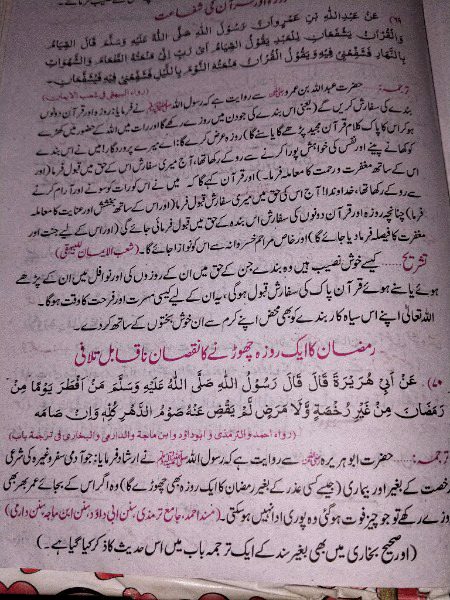 روزہ اور قرآن کی شفاعت
(٦٩) عَنْ عَبْدِاللّٰهِ بْنِ عَمْرٍو اَنَّ رَسُوْلَ اللّٰهِ صَلَّى اللّٰهُ عَلَيْهِ وَسَلَّمَ قَالَ الصِّيَامُ
وَالْقُرْاٰنُ يَشْفَعَانِ لِلْعَبْدِ يَقُوْلُ الصِّيَامُ اَىْ رَبِّ اِنِّىْ مَنَعْتُهُ الطَّعَامَ وَالشَّهَوَاتِ
بِالنَّهَارِ فَشَفِّعْنِىْ فِيْهِ وَيَقُوْلُ الْقُرْاٰنُ مَنَعْتُهُ النَّوْمَ بِاللَّيْلِ فَشَفِّعْنِىْ فِيْهِ فَيُشَفَّعَانِ۔
(رواه البيهقى فى شعب الايمان)
ترجمہ: حضرت عبداللہ بن عمرو سے روایت ہے کہ رسول اللہ ﷺ نے فرمایا: روزہ اور قرآن دونوں
بندے کی سفارش کریں گے (یعنی اس بندے کی جو دن میں روزے رکھے گا اور رات میں اللہ کے حضور میں کھڑے
ہو کر اس کا پاک کلام قرآن مجید پڑھے گا یا سنے گا) روزہ عرض کرے گا: اے میرے پروردگار! میں نے اس بندے
کو کھانے پینے اور نفس کی خواہش پورا کرنے سے روکے رکھا تھا، آج میری سفارش اس کے حق میں قبول فرما (اور
اس کے ساتھ مغفرت و رحمت کا معاملہ فرما) اور قرآن کہے گا کہ میں نے اس کو رات کو سونے اور آرام کرنے
سے روکے رکھا تھا، خداوندا! آج اس کی حق میں میری سفارش قبول فرما (اور اس کے ساتھ بخشش اور عنایت کا معاملہ
فرما) چنانچہ روزہ اور قرآن دونوں کی سفارش اس بندہ کے حق میں قبول فرمائی جائے گی (اور اس کے لیے جنت اور
مغفرت کا فیصلہ فرما دیا جائے گا) اور خاص مراحم خسروانہ سے اس کو نوازا جائے گا۔ (شعب الایمان للبیہقی)
تشریح ...... کیسے خوش نصیب ہیں وہ بندے جن کے حق میں ان کے روزوں کی اور نوافل میں ان کے پڑھے
ہوئے یا سنے ہوئے قرآن پاک کی سفارش قبول ہوگی، یہ ان کے لیے کیسی مسرت اور فرحت کا وقت ہوگا۔
اللہ تعالیٰ اپنے اس سیاہ کار بندے کو بھی محض اپنے کرم سے ان خوش بختوں کے ساتھ کر دے۔
رمضان کا ایک روزہ چھوڑنے کا نقصان ناقابل تلافی
(٧٠) عَنْ اَبِىْ هُرَيْرَةَ قَالَ قَالَ رَسُوْلُ اللّٰهِ صَلَّى اللّٰهُ عَلَيْهِ وَسَلَّمَ مَنْ اَفْطَرَ يَوْمًا مِنْ
رَمَضَانَ مِنْ غَيْرِ رُخْصَةٍ وَّلَا مَرَضٍ لَمْ يَقْضِ عَنْهُ صَوْمُ الدَّهْرِ كُلِّهٖ وَاِنْ صَامَهٗ
(رواه احمد والترمذى و ابوداؤد وابن ماجة والدارمى والبخارى فى ترجمة باب)
ترجمہ: حضرت ابو ہریرہ سے روایت ہے کہ رسول اللہ ﷺ نے ارشاد فرمایا: جو آدمی سفر وغیرہ کی شرعی
رخصت کے بغیر اور بیماری (جیسے کسی عذر کے بغیر رمضان کا ایک روزہ بھی چھوڑے گا) وہ اگر اس کے بجائے عمر بھر بھی
روزے رکھے تو جو چیز فوت ہو گئی وہ پوری ادا نہیں ہو سکتی۔ (مسند احمد، جامع ترمذی، سنن ابی داؤد، سنن ابن ماجہ، سنن دارمی)
(اور صحیح بخاری میں بھی بغیر سند کے ایک ترجمہ باب میں اس حدیث کا ذکر کیا گیا ہے۔)